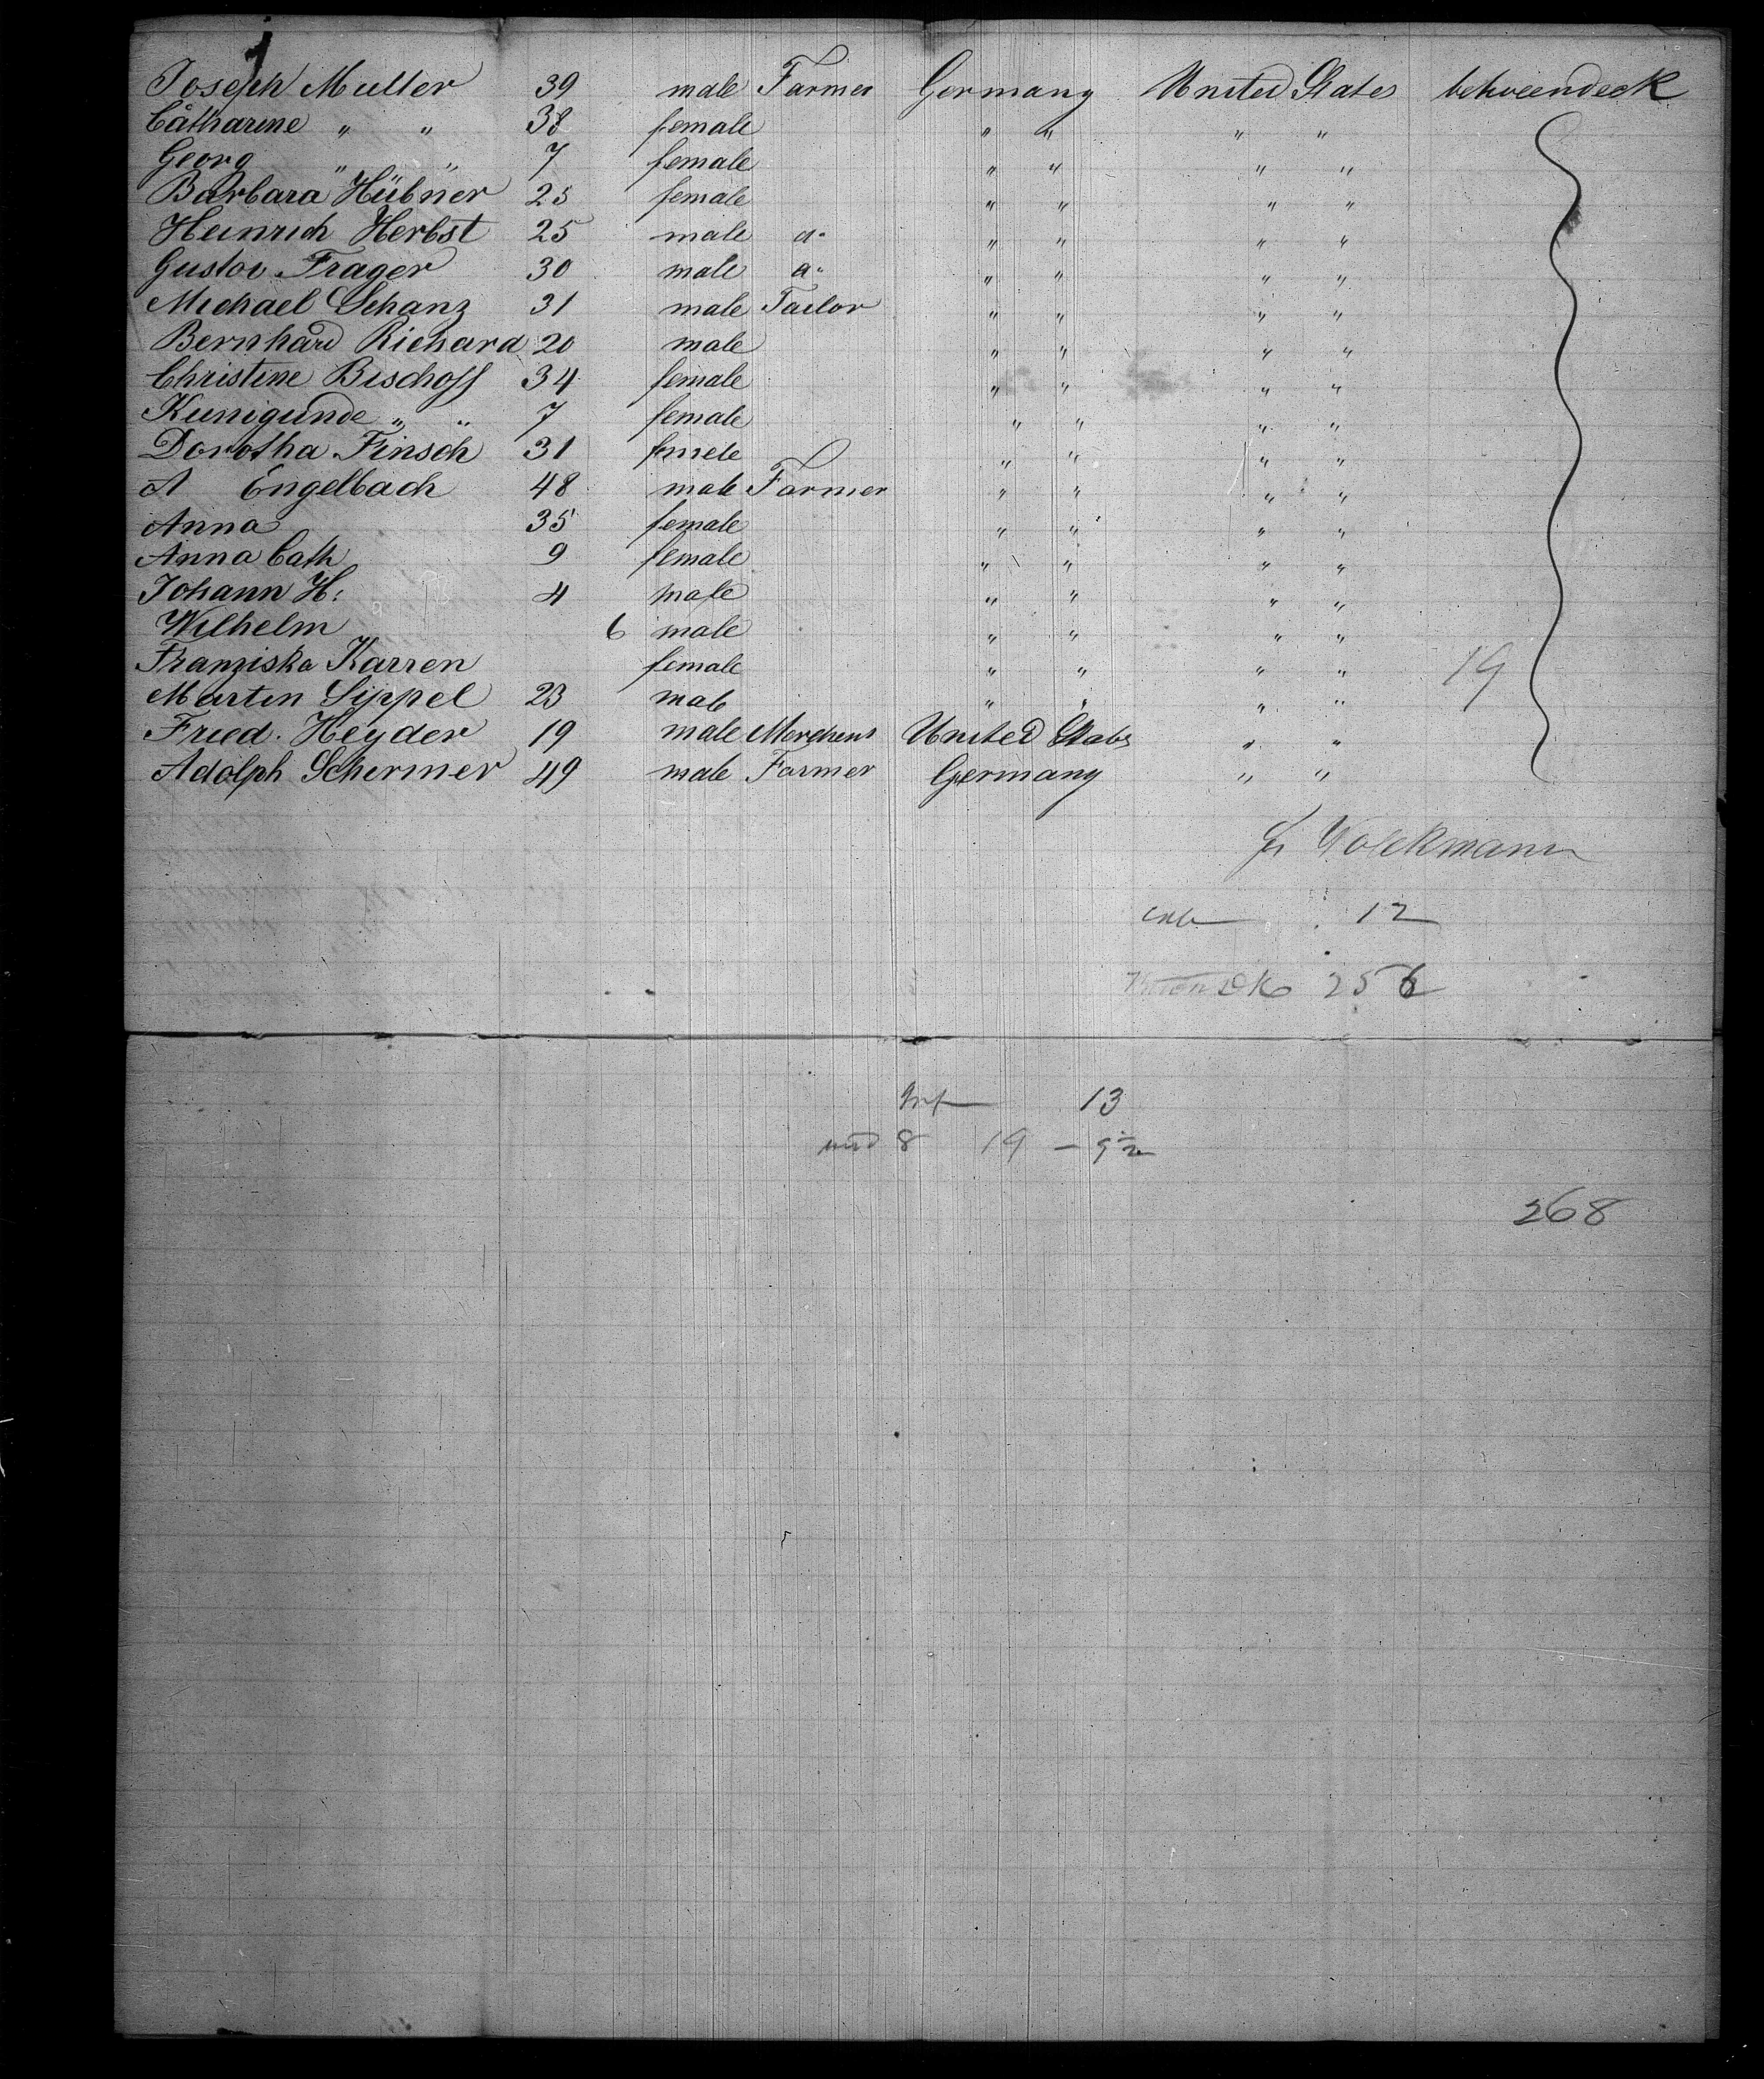 Joseph Muller 39 male Farmer Germany United States betweendeck
Catharine " " 38 female " " " "
Georg " " 7 female " " " "
Barbara Hübner 25 female " " " "
Heinrich Herbst 25 male a. " " " "
Gustav Frager 30 male a. " " " "
Michael Schanz 31 male Tailor " " " "
Bernhard Richard 20 male " " " "
Christine Bischoff 34 female " " " "
Kunigunde " " 7 female " " " "
Dorotha Finsch 31 femele " " " "
A Engelbach 48 male Farmer " " " "
Anna 35 female " " " "
Anna Cath 9 female " " " "
Johann H: 4 male " " " "
Wilhelm 6 male " " " "
Franziska Karren female " " " " 19
Martin Sippel 23 male " " " "
Fried. Heyder 19 male Merchent United States " "
Adolph Schermer 49 male Farmer Germany " "
Wolckmann
12
256
Inf 13
und 8 19 —
268